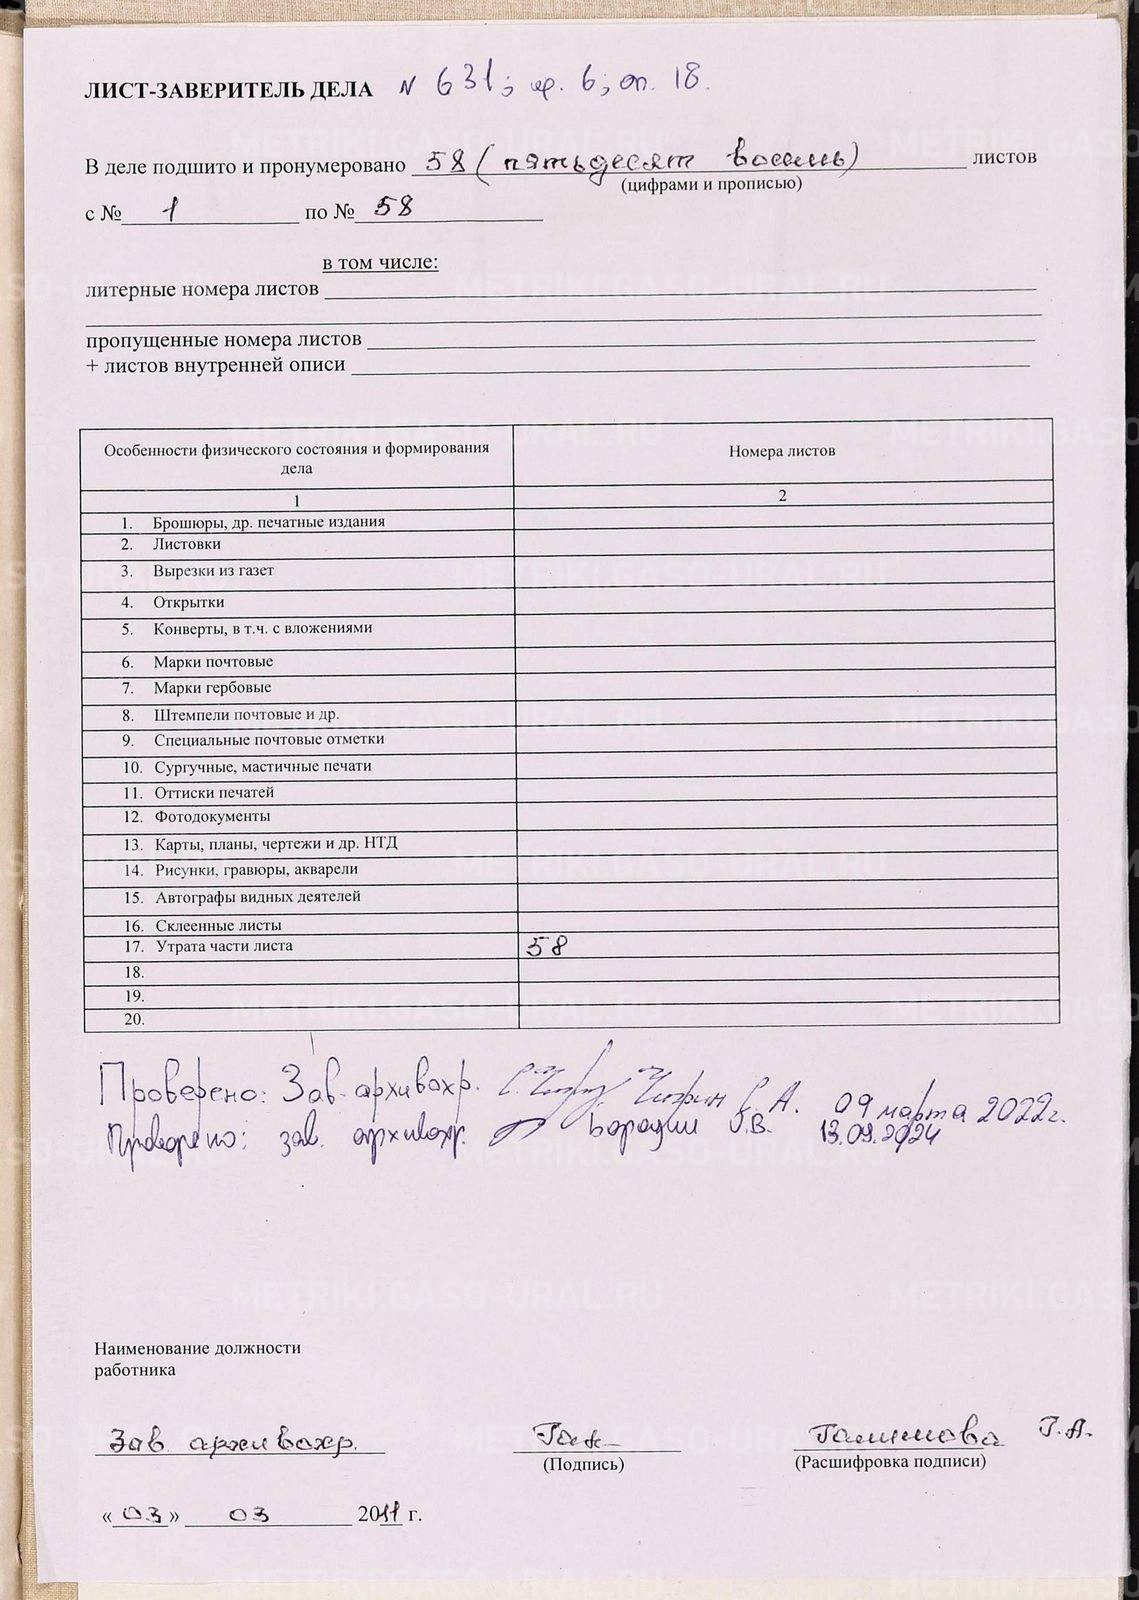 ЛИСТ-ЗАВЕРИТЕЛЬ ДЕЛА N 631; ф. 6; оп. 18.
В деле подшито и пронумеровано 58 (пятьдесят восемь) листов
(цифрами и прописью)
с № 1 по № 58
в том числе:
литерные номера листов
пропущенные номера листов
+ листов внутренней описи
Особенности физического состояния и формирования дела Номера листов
1 2
1. Брошюры, др. печатные издания
2. Листовки
3. Вырезки из газет
4. Открытки
5. Конверты, в т.ч. с вложениями
6. Марки почтовые
7. Марки гербовые
8. Штемпели почтовые и др.
9. Специальные почтовые отметки
10. Сургучные, мастичные печати
11. Оттиски печатей
12. Фотодокументы
13. Карты, планы, чертежи и др. НТД
14. Рисунки, гравюры, акварели
15. Автографы видных деятелей
16. Склеенные листы
17. Утрата части листа 58
18.
19.
20.
Проверено: Зав. архивохр. С. А. 09 марта 2022г.
Проверено: зав. архивохр. 13.09.2024
Наименование должности
работника
Зав. архивохр. Галимова Г.А.
(Подпись) (Расшифровка подписи)
«03» 03 2011 г.
METRIKI.GASO-URAL.RU